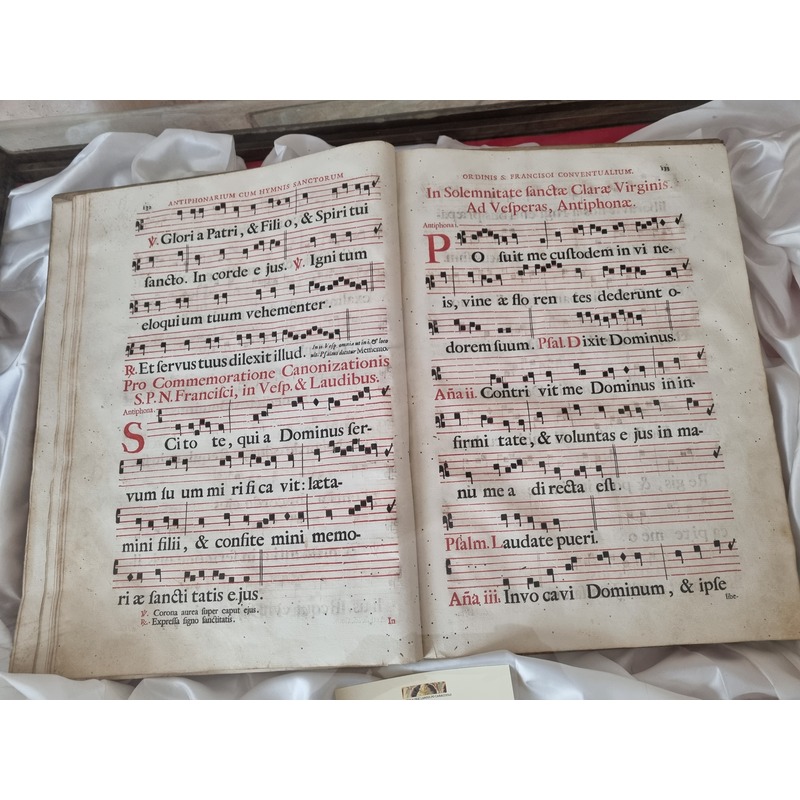 ANTIPHONARIUM CUM HYMNIS SANCTORUM
℣. Gloria Patri, & Filio, & Spiritui
ſancto. In corde ejus. ℣. Ignitum
eloquium tuum vehementer.
℟. Et ſervus tuus dilexit illud.
Memento.
Pro Commemoratione Canonizationis
S. P. N. Franciſci, in Veſp. & Laudibus.
Antiphona.
SCitote, quia Dominus ſer-
vum ſuum mirificavit: læta-
mini filii, & confite mini memo-
riæ ſanctitatis ejus.
℣. Corona aurea ſuper caput ejus.
℟. Expreſſa ſigno ſanctitatis.
In
ORDINIS S. FRANCISCI CONVENTUALIUM.
In Solemnitate ſanctæ Claræ Virginis.
Ad Veſperas, Antiphonæ.
Antiphona i.
POſuit me cuſtodem in vine-
is, vineæ florentes dederunt o-
dorem ſuum. Pſal. Dixit Dominus.
Aña ii. Contrivit me Dominus in in-
firmitate, & voluntas ejus in ma-
nu mea directa eſt.
Pſalm. Laudate pueri.
Aña iii. Invocavi Dominum, & ipſe